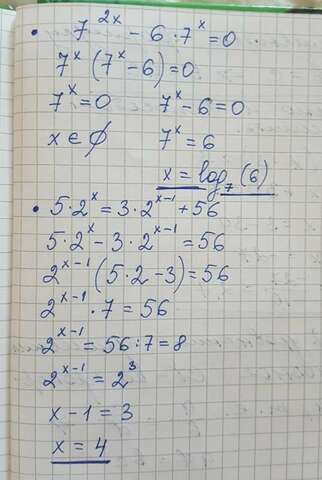 • 7^{2x} - 6 · 7^x = 0
7^x (7^x - 6) = 0
7^x = 0    7^x - 6 = 0
x ∈ ∅    7^x = 6
x = log_7 (6)
• 5 · 2^x = 3 · 2^{x-1} + 56
5 · 2^x - 3 · 2^{x-1} = 56
2^{x-1} (5 · 2 - 3) = 56
2^{x-1} · 7 = 56
2^{x-1} = 56 : 7 = 8
2^{x-1} = 2^3
x - 1 = 3
x = 4